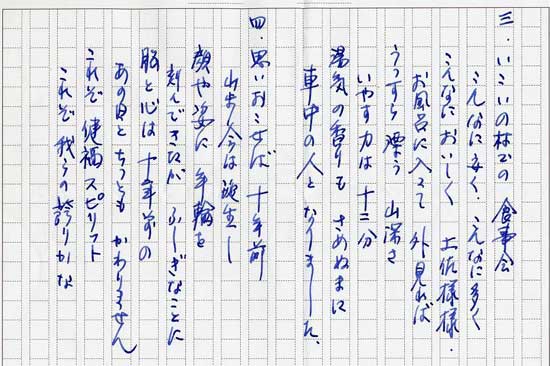 三．いこいの村での 食事会
こんなに安く．こんなに多く
こんなにおいしく 土佐様様．
お風呂に入って 外見れば
うっすら漂う 山深さ
いやす力は 十二分
湯気の香りも さめぬまに
車中の人と なりました．
四．思いおこせば 十年前
山歩人会は 誕生し
顔や姿に 年輪を
刻んできたが ふしぎなことに
脳と心は 十年前の
あの日とちっとも かわりません
これぞ 健福スピリット
これぞ 我らの誇りかな